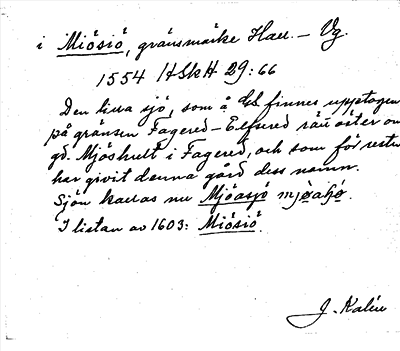 i Miösiö, gränsmärke Hall. – Vg.
1554 HSkH 29:66
Den lilla sjö, som å GS finnes upptagen
på gränsen Fagered–Elfsered rätt öster om
gd. Mjöshult i Fagered, och som för resten
har givit denna gård dess namn.
Sjön kallas nu Mjöasjö
I listan av 1603: Miösiö.
J. Kalén